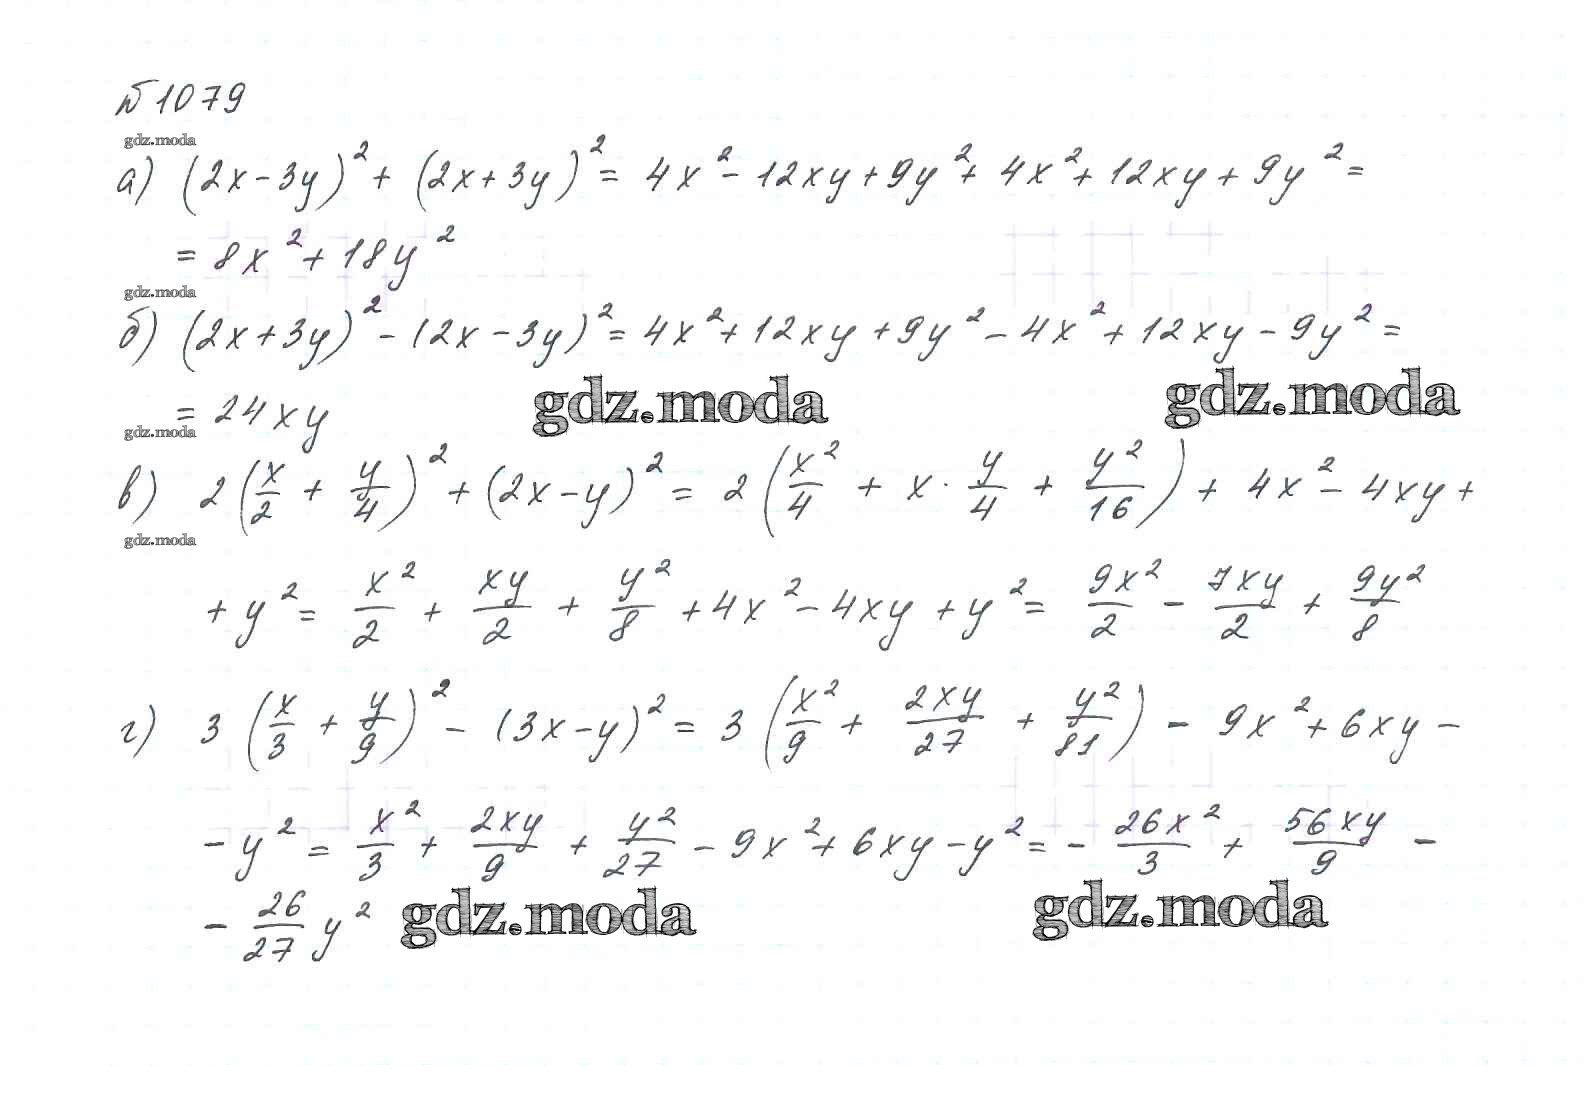 №1079
gdz.moda
а) (2x-3y)² + (2x+3y)² = 4x² - 12xy + 9y² + 4x² + 12xy + 9y² =
= 8x² + 18y²
gdz.moda
б) (2x+3y)² - (2x-3y)² = 4x² + 12xy + 9y² - 4x² + 12xy - 9y² =
= 24xy
gdz.moda gdz.moda
gdz.moda
в) 2(x/2 + y/4)² + (2x-y)² = 2(x²/4 + x · y/4 + y²/16) + 4x² - 4xy +
gdz.moda
+ y² = x²/2 + xy/2 + y²/8 + 4x² - 4xy + y² = 9x²/2 - 7xy/2 + 9y²/8
г) 3(x/3 + y/9)² - (3x-y)² = 3(x²/9 + 2xy/27 + y²/81) - 9x² + 6xy -
- y² = x²/3 + 2xy/9 + y²/27 - 9x² + 6xy - y² = - 26x²/3 + 56xy/9 -
- 26/27 y²
gdz.moda gdz.moda